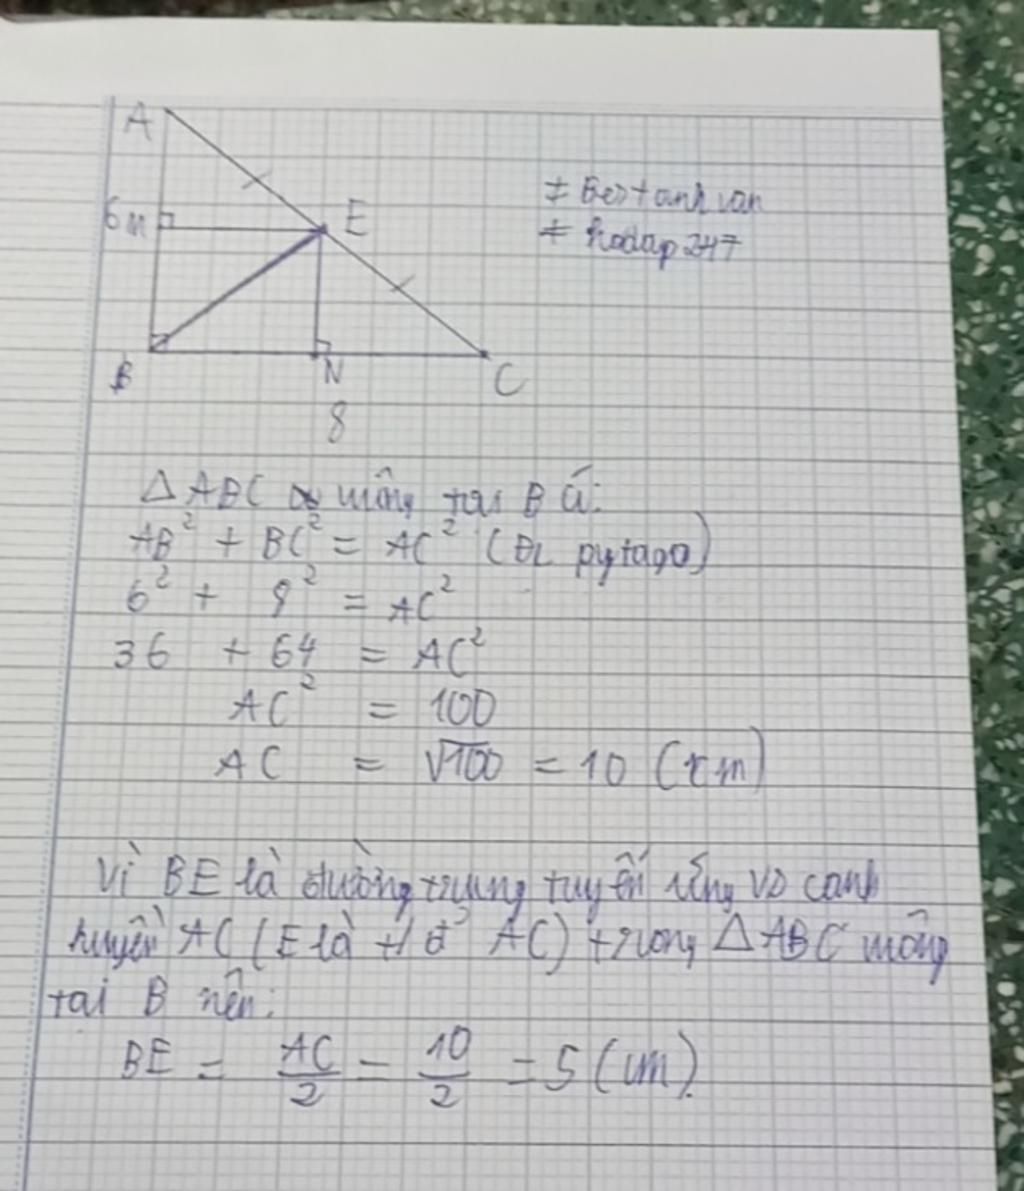 A
6 M
E
B
N
C
8
# Bestanhvan
# hodap247
Δ ABC vuông tại B có:
AB² + BC² = AC² (ĐL pytago)
6² + 8² = AC²
36 + 64 = AC²
AC² = 100
AC = √100 = 10 (cm)
Vì BE là đường trung tuyến ứng vs cạnh
huyền AC (E là tđ AC) trong Δ ABC vuông
tại B nên:
BE = AC/2 = 10/2 = 5 (cm).